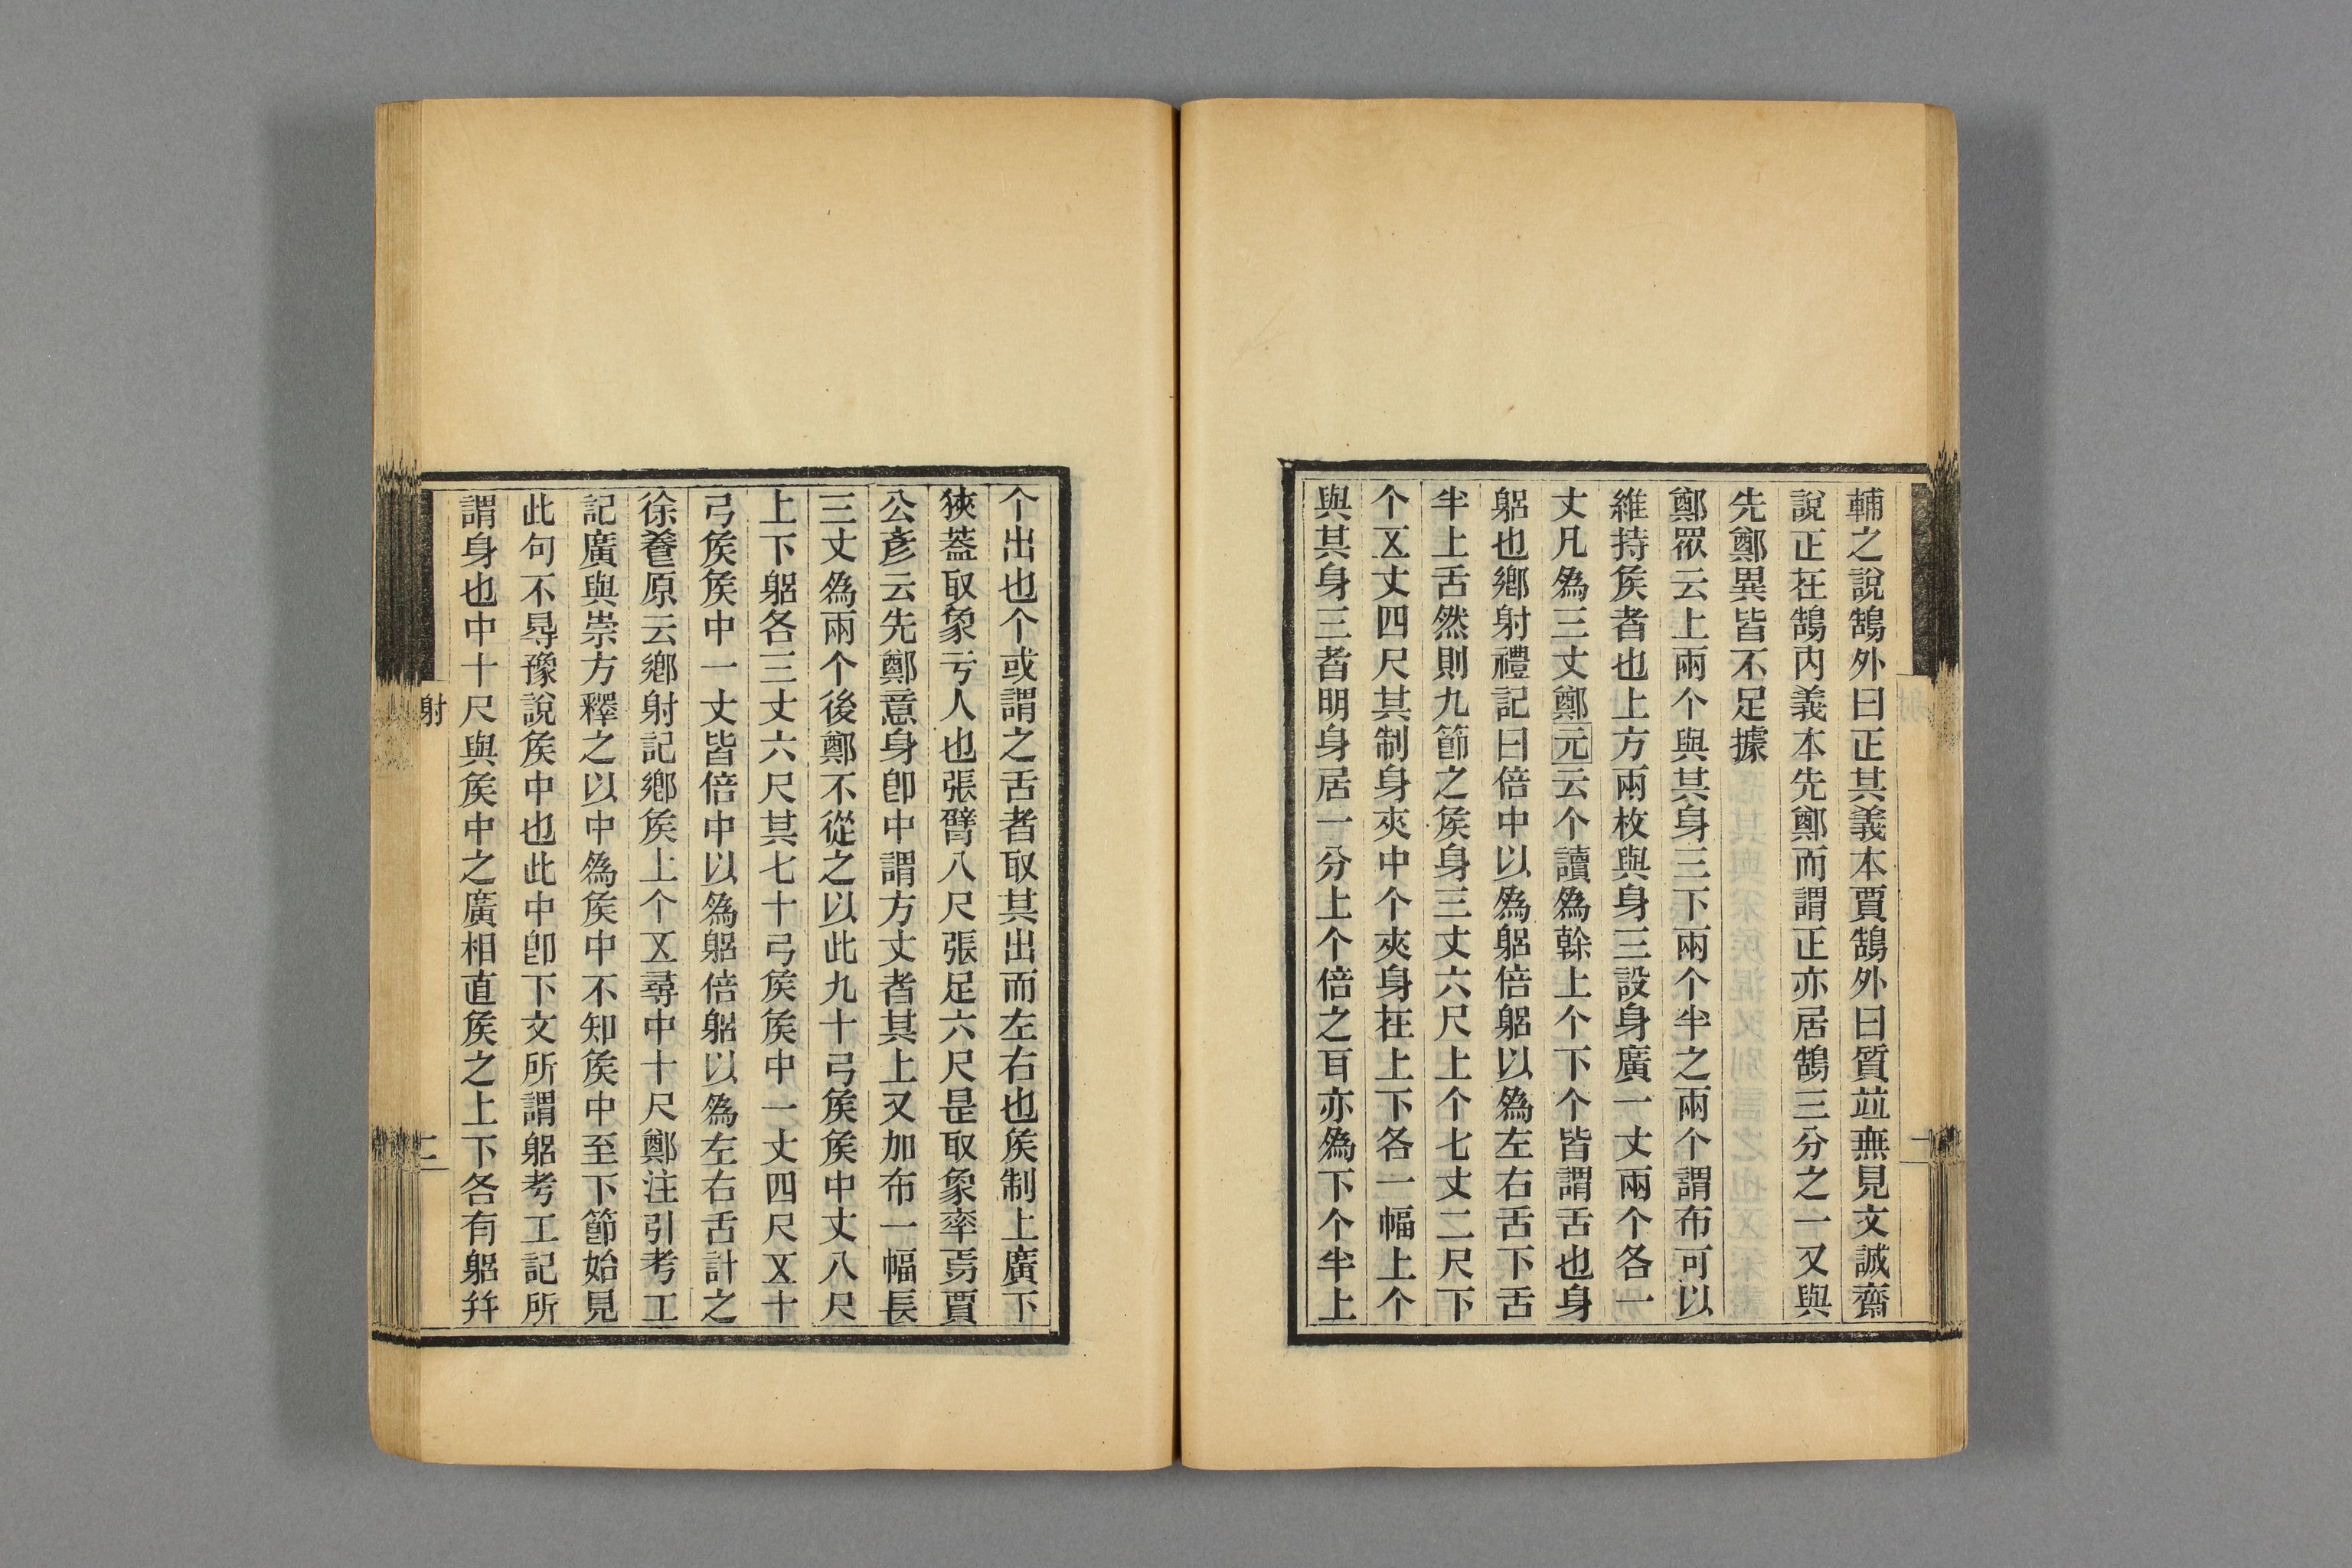 輔之說鵠外曰正其義本賈鵠外曰質竝無見文誠齋
說正在鵠內義本先鄭而謂正亦居鵠三分之一又與
先鄭異皆不足據
鄭眾云上兩个與其身三下兩个半之兩个謂布可以
維持矦者也上方兩枚與身三設身廣一丈兩个各一
丈凡爲三丈鄭元云个讀爲榦上个下个皆謂舌也身
躳也鄉射禮記曰倍中以爲躳倍躳以爲左右舌下舌
半上舌然則九節之矦身三丈六尺上个七丈二尺下
个五丈四尺其制身夾中个夾身在上下各一幅上个
與其身三者明身居一分上个倍之耳亦爲下个半上
个出也个或謂之舌者取其出而左右也矦制上廣下
狹葢取象亏人也張臂八尺張足六尺是取象率焉賈
公彥云先鄭意身卽中謂方丈者其上又加布一幅長
三丈爲兩个後鄭不從之以此九十弓矦矦中丈八尺
上下躳各三丈六尺其七十弓矦矦中一丈四尺五十
弓矦矦中一丈皆倍中以爲躳倍躳以爲左右舌計之
徐養原云鄉射記鄉矦上个五尋中十尺鄭注引考工
記廣與崇方釋之以中爲矦中不知矦中至下節始見
此句不㝵豫說矦中也此中卽下文所謂躳考工記所
謂身也中十尺與矦中之廣相直矦之上下各有躳幷
射
二